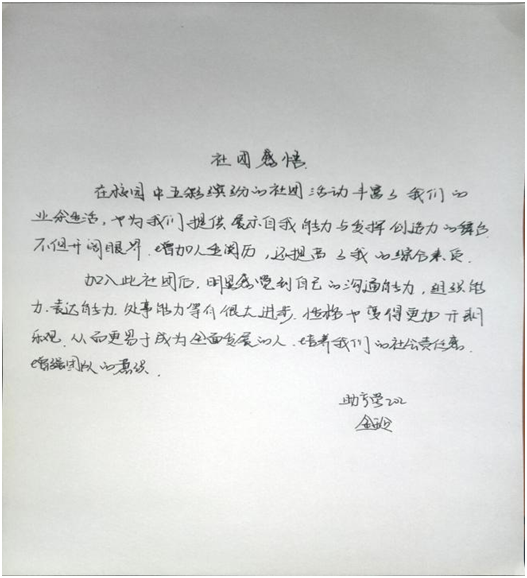 社团感悟
在校园中五彩缤纷的社团活动丰富了我们的
业余生活,也为我们提供展示自我能力与发挥创造力的舞台
不但开阔眼界、增加人生阅历,还提高了我的综合素质.
加入此社团后,明显感觉到自己的沟通能力,组织能
力、表达能力、处事能力等有很大进步.性格也变得更加开朗
乐观.从而更易于成为全面发展的人.培养我们的社会责任感.
增强团队的意识.
助产学202